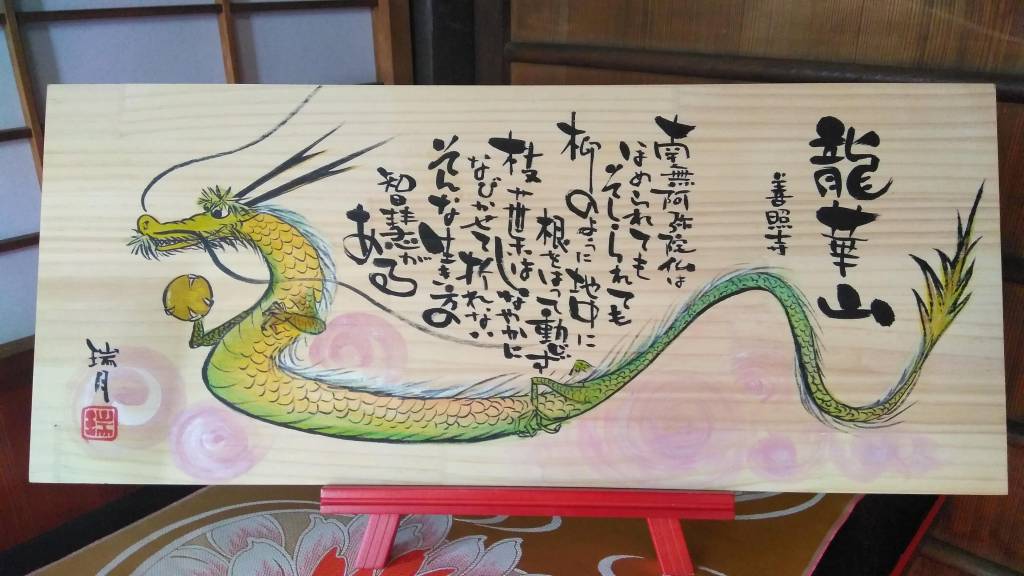 龍華山
善照寺
南無阿弥陀仏は
ほめられても
そしられても
柳のように地中に
根をはって動ぜず
枝や葉はしなやかに
なびかせて折れない
そんな生き方の
智慧が
ある
瑞月
瑞